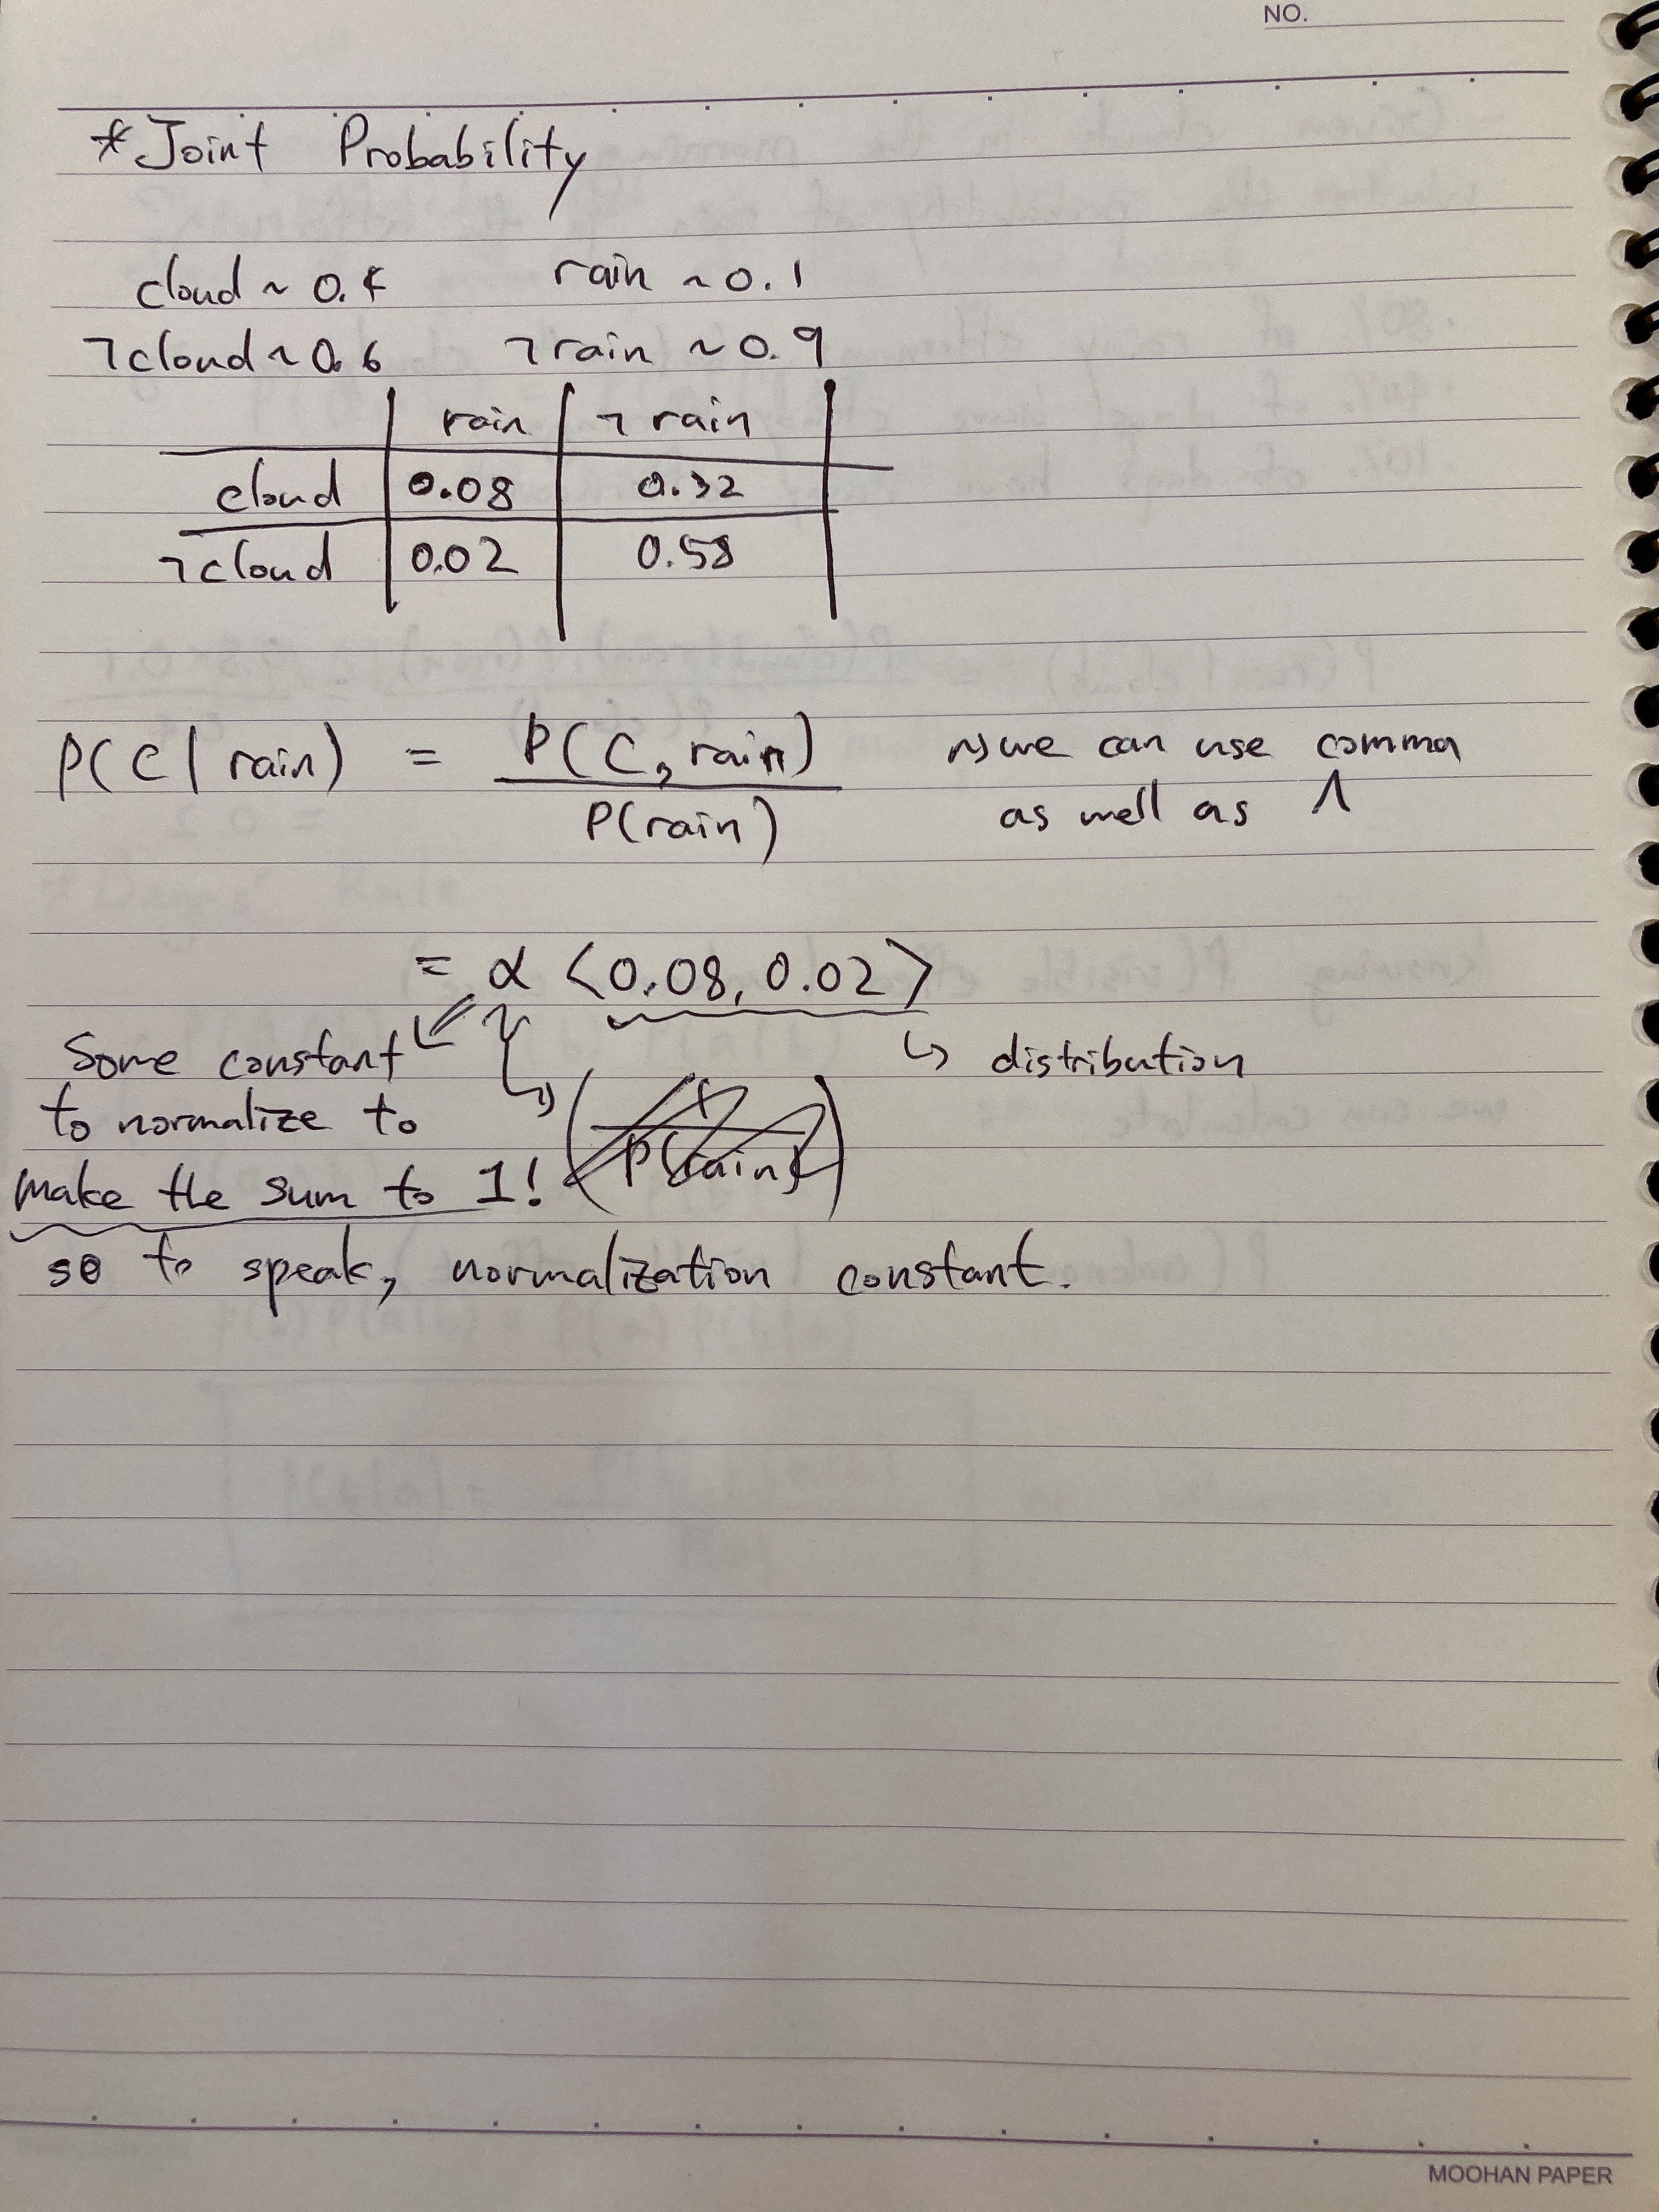 NO.
*Joint Probability
cloud ~ 0.4 rain ~0.1
¬cloud ~ 0.6 ¬rain ~0.9
rain ¬ rain
cloud 0.08 0.32
¬cloud 0.02 0.58
P(C | rain) = P(C, rain) / P(rain) ~> we can use comma
as well as ∧
= α <0.08, 0.02>
Some constant ↳ distribution
to normalize to
make the sum to 1! (1/P(rain))
so to speak, normalization constant.
MOOHAN PAPER